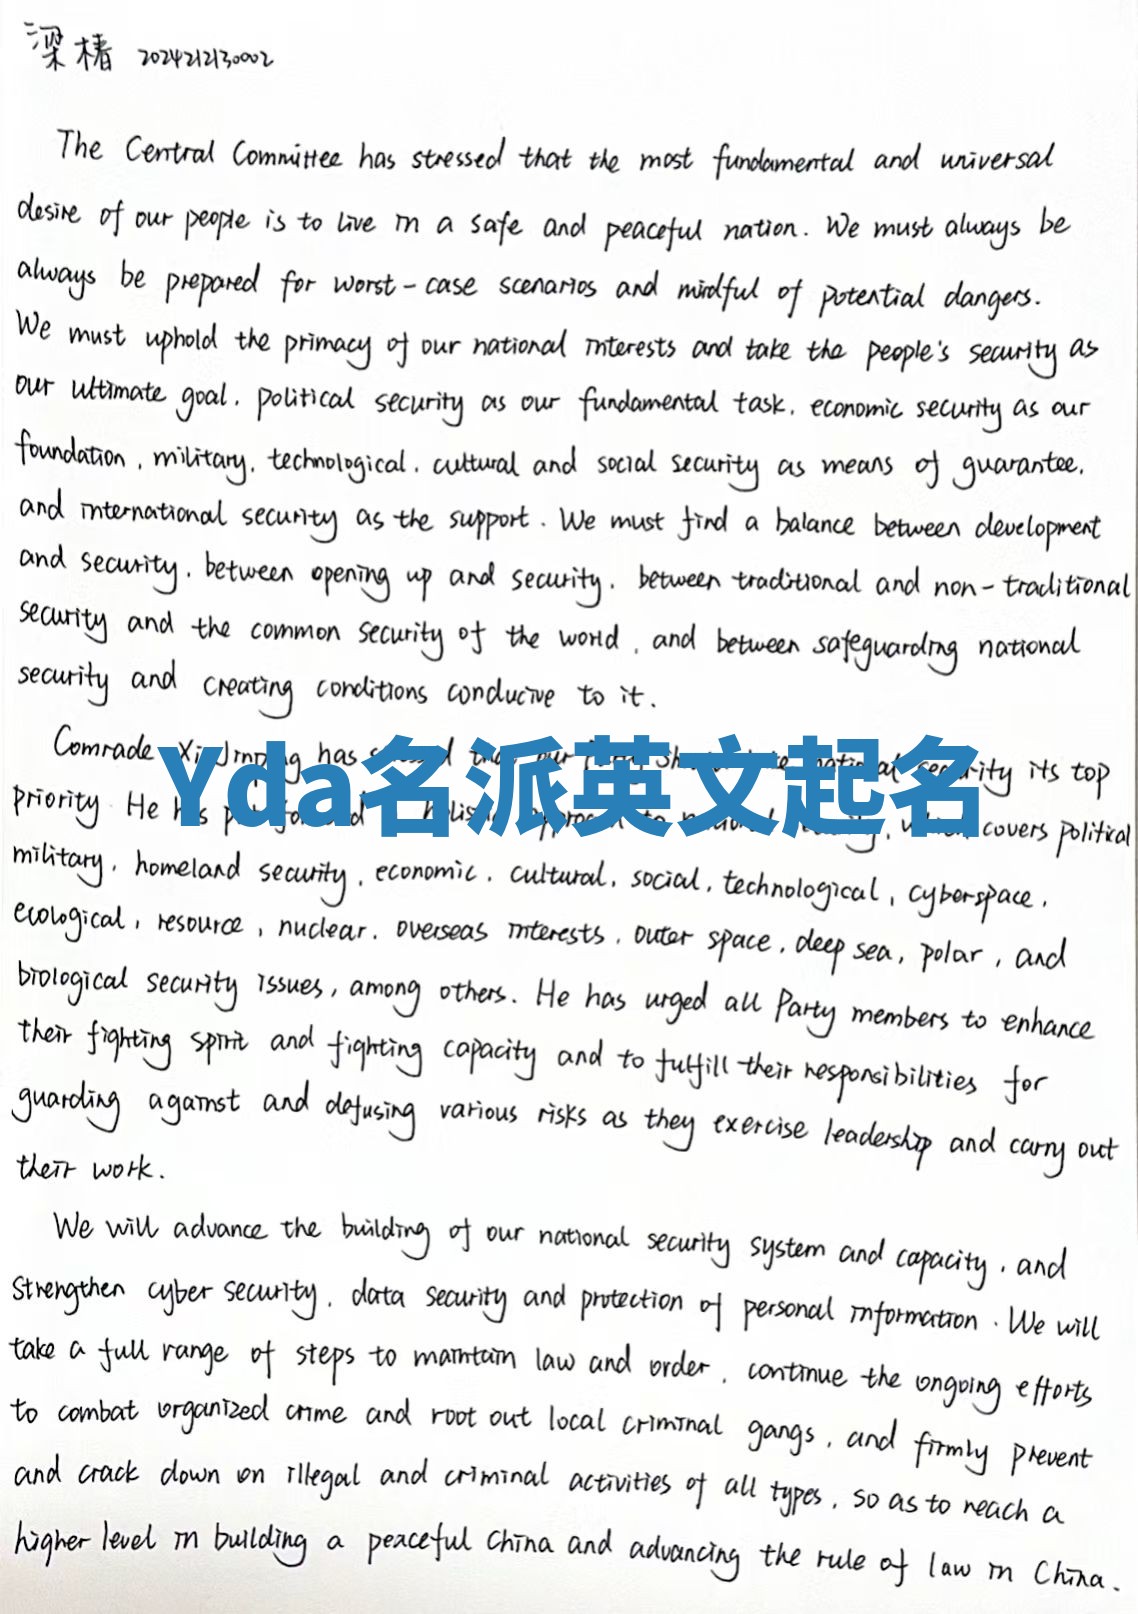 梁椿 2024212130002
The Central Committee has stressed that the most fundamental and universal
desire of our people is to live in a safe and peaceful nation. We must always be
always be prepared for worst-case scenarios and mindful of potential dangers.
We must uphold the primacy of our national interests and take the people's security as
our ultimate goal, political security as our fundamental task, economic security as our
foundation, military, technological, cultural and social security as means of guarantee,
and international security as the support. We must find a balance between development
and security, between opening up and security, between traditional and non-traditional
security and the common security of the world, and between safeguarding national
security and creating conditions conducive to it.
Comrade Xi Jinping has that our national security its top
Yda名派英文起名
priority He has to covers political
military, homeland security, economic, cultural, social, technological, cyberspace,
ecological, resource, nuclear, overseas interests, outer space, deep sea, polar, and
biological security issues, among others. He has urged all Party members to enhance
their fighting spirit and fighting capacity and to fulfill their responsibilities for
guarding against and defusing various risks as they exercise leadership and carry out
their work.
We will advance the building of our national security system and capacity, and
strengthen cyber security, data security and protection of personal information. We will
take a full range of steps to maintain law and order, continue the ongoing efforts
to combat organized crime and root out local criminal gangs, and firmly prevent
and crack down on illegal and criminal activities of all types, so as to reach a
higher level in building a peaceful China and advancing the rule of law in China.